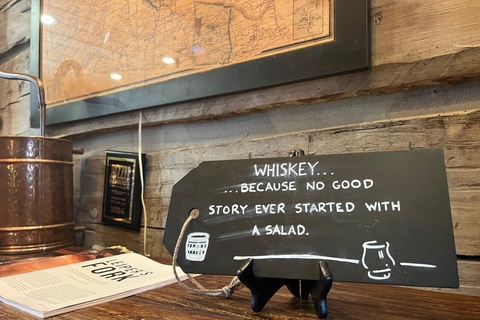 WHISKEY...
...BECAUSE NO GOOD
STORY EVER STARTED WITH
A SALAD.
2024
FORK